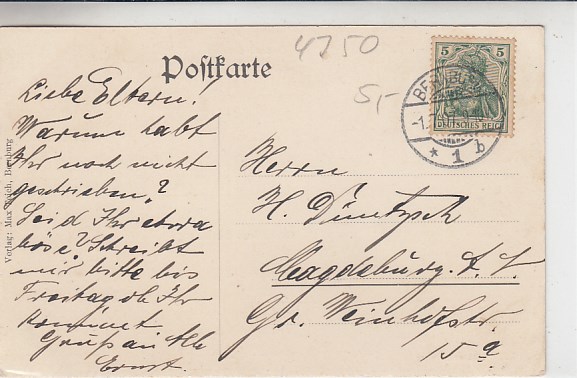 4750
5,-
Postkarte
5 5
DEUTSCHES REICH
BERNBURG
1 b
Liebe Eltern!
Warum habt
Ihr noch nicht
geschrieben?
Seid Ihr etwa
böse? Schreibt
mir bitte bis
Freitag ob Ihr
kommt.
Gruß an Alle
Ernst.
Herrn
H. Düntzsch
Magdeburg A. S.
Gr. Weinhofstr.
15 a
Verlag: Max Bernburg